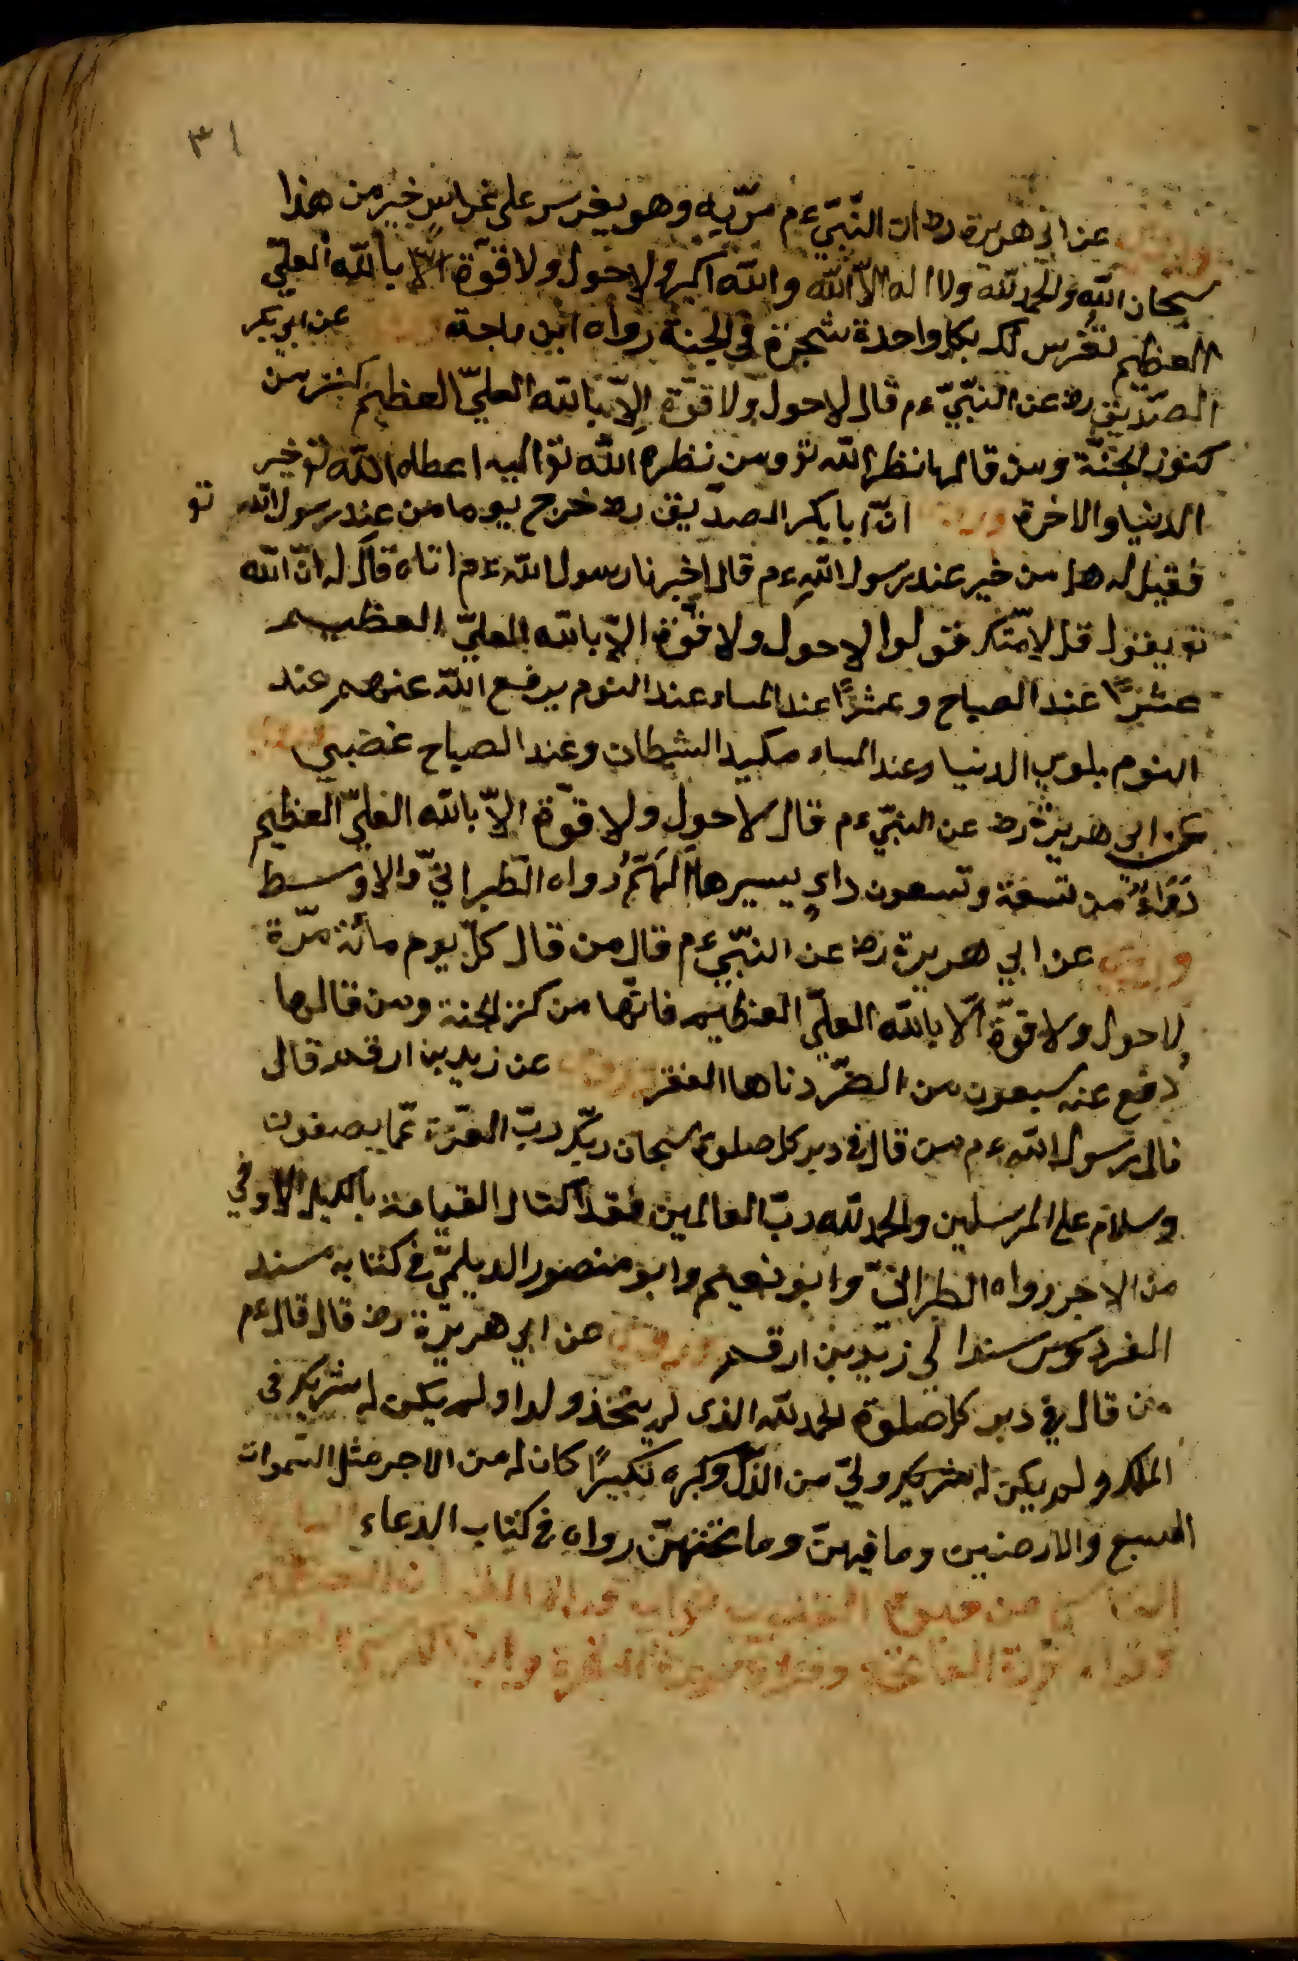 ٣١
وروي عن ابي هريرة رض ان النّبيّ ءم مرّ به وهو يغرس على غراس خير من هذا
سبحان الله والحمد لله ولا اله الاّ الله والله اكبر ولا حول ولا قوّة الاّ بالله العليّ
العظيم تغرس لك بكل واحدة شجرة في الجنة رواه ابن ماجة عن ابي بكر
الصدّيق رض عن النبيّ ءم قال لا حول ولا قوّة الاّ بالله العليّ العظيم كنز من
كنوز الجنّة ومن قالها نظر الله تع ومن نظره الله تع اليه اعطاه الله تع خير
الدنيا والاخرة وروي انّ ابا بكر الصدّيق رض خرج يوما من عند رسول الله تع
فقيل له هل من خير عند رسول الله ءم قال اخبرنا رسول الله ءم اتاه قال له انّ الله
تع يقول قل لامّتك فقولوا لا حول ولا قوّة الاّ بالله العليّ العظيم
عشرًا عند الصباح وعشرًا عند المساء عند النوم يرفع الله عنهم عند
النوم بلوى الدنيا وعند المساء مكيد الشيطان وعند الصباح غضبي وروي
عن ابي هريرة رض عن النبيّ ءم قال لا حول ولا قوّة الاّ بالله العليّ العظيم
دَوَاءٌ من تسعة وتسعون داءٍ يسيرها الهَمُّ رواه الطبرانيّ والاوسط
وروي عن ابي هريرة رض عن النبّي ءم قال من قال كلّ يوم مائة مرّة
لا حول ولا قوّة الاّ بالله العليّ العظيم فانّها من كنز الجنة ومن قالها
دفع عنه سبعون من الضّر دناها الفقر وروي عن زيد بن ارقم قال
قال رسول الله ءم من قال في دبر كل صلوة سبحان ربّك ربّ العزّة عمّا يصفون
وسلام على المرسلين والحمد لله ربّ العالمين فقد اكتال القيامة بالكيل الاوفي
من الاجر رواه الطبرانيّ وابو نعيم وابو منصور الديلميّ في كتابه مسند
الفردوس سندا لي زيد بن ارقم وروي عن ابي هريرة رض قال قال ءم
من قال في دبر كل صلوة الحمد لله الذى لم يتّخذ ولدا ولم يكن له شريك فى
الملك ولم يكن له شريك وليّ من الذّل وكبره تكبيرًا كان له من الاجر مثل السّموات
السبع والارضين وما فيهنّ وما تحتهنّ رواه في كتاب الدعاء الباب
من فتوح الغيوب ثواب قراة القران العظيم
وقراة الفاتحة وقراة سورة البقرة واية الكرسي